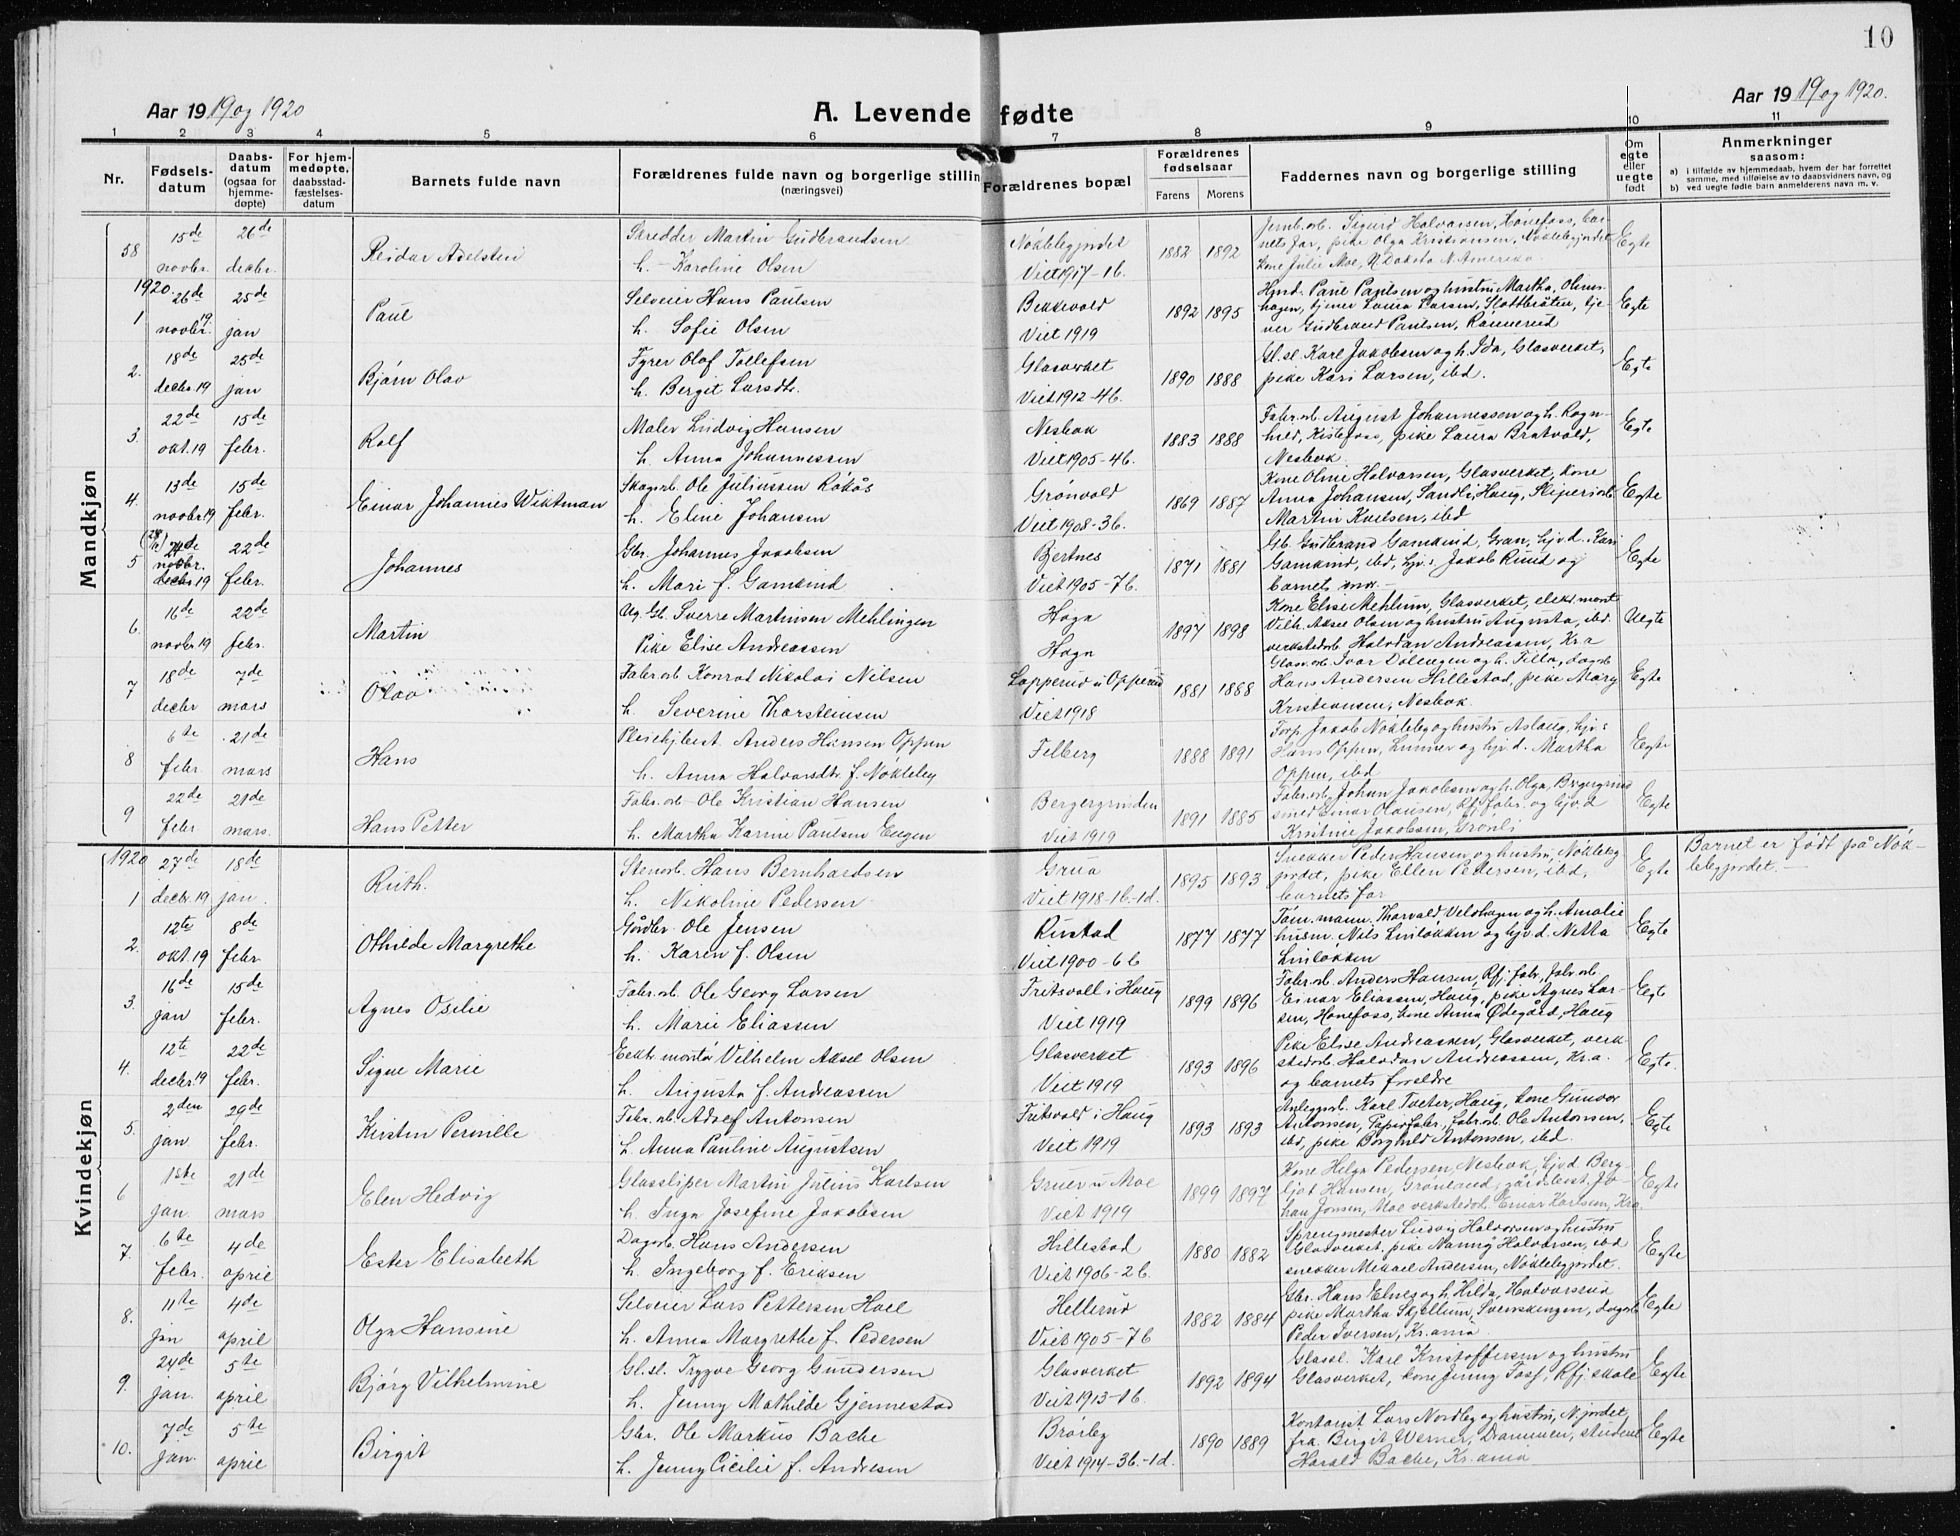 10
Aar 1919 og 1920
A. Levende fødte
Aar 1919 og 1920.
1 2 3 4 5 6 7 8 9 10 11
Nr.
Fødsels-
datum
Daabs-
datum
(ogsaa for
hjemme-
døpte)
For hjem-
medøpte,
daabsstad-
fæstelses-
datum
Barnets fulde navn
Forældrenes fulde navn og borgerlige stilling
(næringsvei)
Forældrenes bopæl
Forældrenes
fødselsaar
Farens Morens
Faddernes navn og borgerlige stilling
Om
egte
eller
uegte
født
Anmerkninger
saasom:
a) i tilfælde av hjemmedaab, hvem der har forrettet
samme, med tilføielse av to daabsvidners navn, og
b) ved uegte fødte barn anmelderens navn m. v.
Mandkjøn
58 15de novbr. 26de decbr. Reidar Adelsten
Skredder Martin Gudbrandsen
h. Karoline Olsen
Nøklebygjordet
Viet 1917-16.
1882 1892
Jernb.arb. Sigurd Halvorsen, Hønefoss, bar-
nets far, pike Olga Kristiansen, Nøklebygjordet
kone Julie Moe, N. Dakota N. Amerika.
Egte
1920.
1 26de novbr. 19 25de jan Paul
Selveier Hans Paulsen
h. Sofie Olsen
Bekkevold
Viet 1919
1892 1895
Hmd. Paul Paulsen og hustru Martha, Olims-
hagen, tjener Laura Larsen, Slottbråten, tje-
ner Gudbrand Paulsen, Rønnerud
Egte
2. 18de decbr. 19 25de jan Bjørn Olav
Fyrer Olaf Tollefsen
h. Bergit Larsdtr.
Glasverket
Viet 1912-46.
1890 1888
Gl.sl. Karl Jakobsen og h. Ida, Glasverket,
pike Kari Larsen, ibd.
Egte
3. 22de okt. 19 15de febr. Rolf
Maler Ludvig Hansen
h. Anna Johannessen
Nesbak
Viet 1905-46.
1883 1888
Fabr.arb. August Johannessen og h. Ragn-
hild, Kistefoss, pike Laura Bratvold,
Nesbak.
Egte
4. 13de novbr 19 15de febr. Einar Johannes Wiktman
Skogsarb. Ole Juliussen Rokås
h. Eline Johansen
Grønvold
Viet 1908-36.
1869 1887
Kone Oline Halvorsen, Glasverket, kone
Anna Johansen, Sandli, Haug, Sliperiarb.
Martin Karlsen, ibd
Egte
5 24de novbr. decbr. 19 22de febr. Johannes
Gbr. Johannes Jakobsen
h. Mari f. Gamkind
Bjertnes
Viet 1905-76.
1871 1881
Gb. Gudbrand Gamkind, Gran, hjv.d. Kari
Gamkind, ibd, hjv.s. Jakob Ruud og
barnets mor.
Egte
6. 16de novbr 19 22de febr. Martin
Ug. Gl. Sverre Martinsen Mehlingen
Pike Elise Andreassen
Hagn
Hagn
1897 1898
Kone Elise Mehlum, Glasverket, elekr. mont
Vilh. Aksel Olsen og hustru Augusta, ibd.
verkstedarb. Halvdan Andreassen, Kr.a
Uegte
7 18de decbr 7de mars Olav
Fabr.arb Konrad Nikolai Nilsen
h. Severine Thorsteinsen
Lapperud u Opperud
Viet 1918
1881 1888
Glasv.arb. Ivar Dølengen og h. Tilla, dagarb
Hans Andersen Hillestad, pike Mary
Kristiansen, Nesbak.
Egte
8 6te febr 21de mars Hans
Pleiehjbest. Anders Hansen Oppen
h. Anna Halvorsdtr. f. Nøkleby
Felberg
1888 1891
Forp. Jakob Nøkleby og hustru Aslaug, hjv.s
Hans Oppen, Lunner og hjv.d. Martha
Oppen, ibd
Egte
9 22de febr 21de mars. Hans Petter
Fabr.arb. Ole Kristian Hansen
h. Martha Karine Paulsen Engen
Bergergrinden
Viet 1919
1891 1885
Fabr.arb. Johan Jakobsen og h. Olga, Bergergrind
smed Einar Olausen, Rfj. fabr. og hjv.d
Kristine Jakobsen, Grønli
Egte
Kvindekjøn
1920
1 27de decbr. 19 18de jan. Ruth.
Stenarb. Hans Bernhardsen
h. Nikoline Pedersen
Grua
Viet 1918-16-1d.
1895 1893
Snekker Peder Hansen og hustru, Nøkleby
jordet, pike Ellen Pedersen, ibd,
barnets far
Egte
Barnet er født på Nøk-
lebygjordet.
2. 12te okt. 19 8de febr Othilde Margrethe
Gårdbr. Ole Jensen
h. Karen f. Olsen
Rustad
Viet 1900-66
1877 1877
Tøm.mann. Thorvald Velohagen og h. Amalie
husm. Nils Linløkken og hjv.d. Netta
Linløkken
Egte
3. 16de jan 15de febr. Agnes Osilie
Fabr.arb. Ole Georg Larsen
h. Marie Eliassen
Fritsvoll i Haug
Viet 1919
1899 1896
Fabr.arb. Anders Hansen, Rfj. fabr, fabr.arb
Einar Eliassen, Haug, pike Agnes Lar-
sen, Hønefoss, kone Anna Ødegård, Haug
Egte
4. 12te decbr. 19 22de febr. Signe Marie
Eektr. montør Vilhelm Aksel Olsen
h. Augusta f. Andreassen
Glasverket
Viet 1919
1893 1896
Pike Elise Andreassen, Glasverket, verk-
stedarb. Halvdan Andreassen, Kr.a.
og barnets foreldre
Egte.
5. 2den jan. 29de febr. Kirsten Pernille
Fabr.arb. Adolf Antonsen
h. Anna Pauline Augustsen
Fritsvold i Haug
Viet 1919
1893 1893
Anleggsarb. Karl Tveter, Haug, kone Gunvor
Antonsen, Papirfabr, fabr.arb Ole Antonsen,
ibd, pike Borghild Antonsen, ibd.
Egte
6 1ste jan. 21de mars Elen Hedvig
Glassliper Martin Julius Karlsen
h. Inga Josefine Jakobsen
Gruer u Moe
Viet 1919
1899 1897
Kone Helga Pedersen, Nesbak, hjv.d. Berg-
ljot Hansen, Grønland, gårdsbest. Jo-
han Jonsen, Moe verkstedarb. Einar Karlsen, Kra.
Egte
7. 6te febr. 4de april Ester Elisabeth
Dagarb. Hans Andersen
h. Ingeborg f. Eriksen
Hillestad
Viet 1906-26.
1880 1882
Sprengmester Ludvig Halvorsen og hustru
Glasverket, pike Nanny Halvorsen, ibd
snekker Mikael Andersen, Nøklebygjordet.
Egte
8. 11te jan 4de april Olga Hansine
Selveier Lars Pettersen Hoel
h. Anna Margrethe f. Pedersen
Hellerud
Viet 1905-76
1882 1884
Gbr. Hans Elnes og h. Hilda, Halvorsrud
pike Martha Skjellum, Svenskengen, dagarb
Peder Iversen, Kr.ania
Egte
9. 24de jan. 5te april Bjørg Vilhelmine
Gl.sl. Trygve Georg Gundersen
h. Jenny Mathilde Gjennestad
Glasverket
Viet 1913-16.
1892 1894
Glassl. Karl Kristoffersen og hustru
Glasverket, kone Jenny Foss, Rfj. skole
Egte
10. 7de jan. 5te april Birgit
Gbr. Ole Markus Bache
h. Jenny Cicilie f. Andresen
Brørby
Viet 1914-36.-1d.
1890 1889
Kontorist Lars Nordby og hustru, N. jordet,
frk. Birgit Werner, Drammen, student
Harald Bache, Kr.ania
Egte